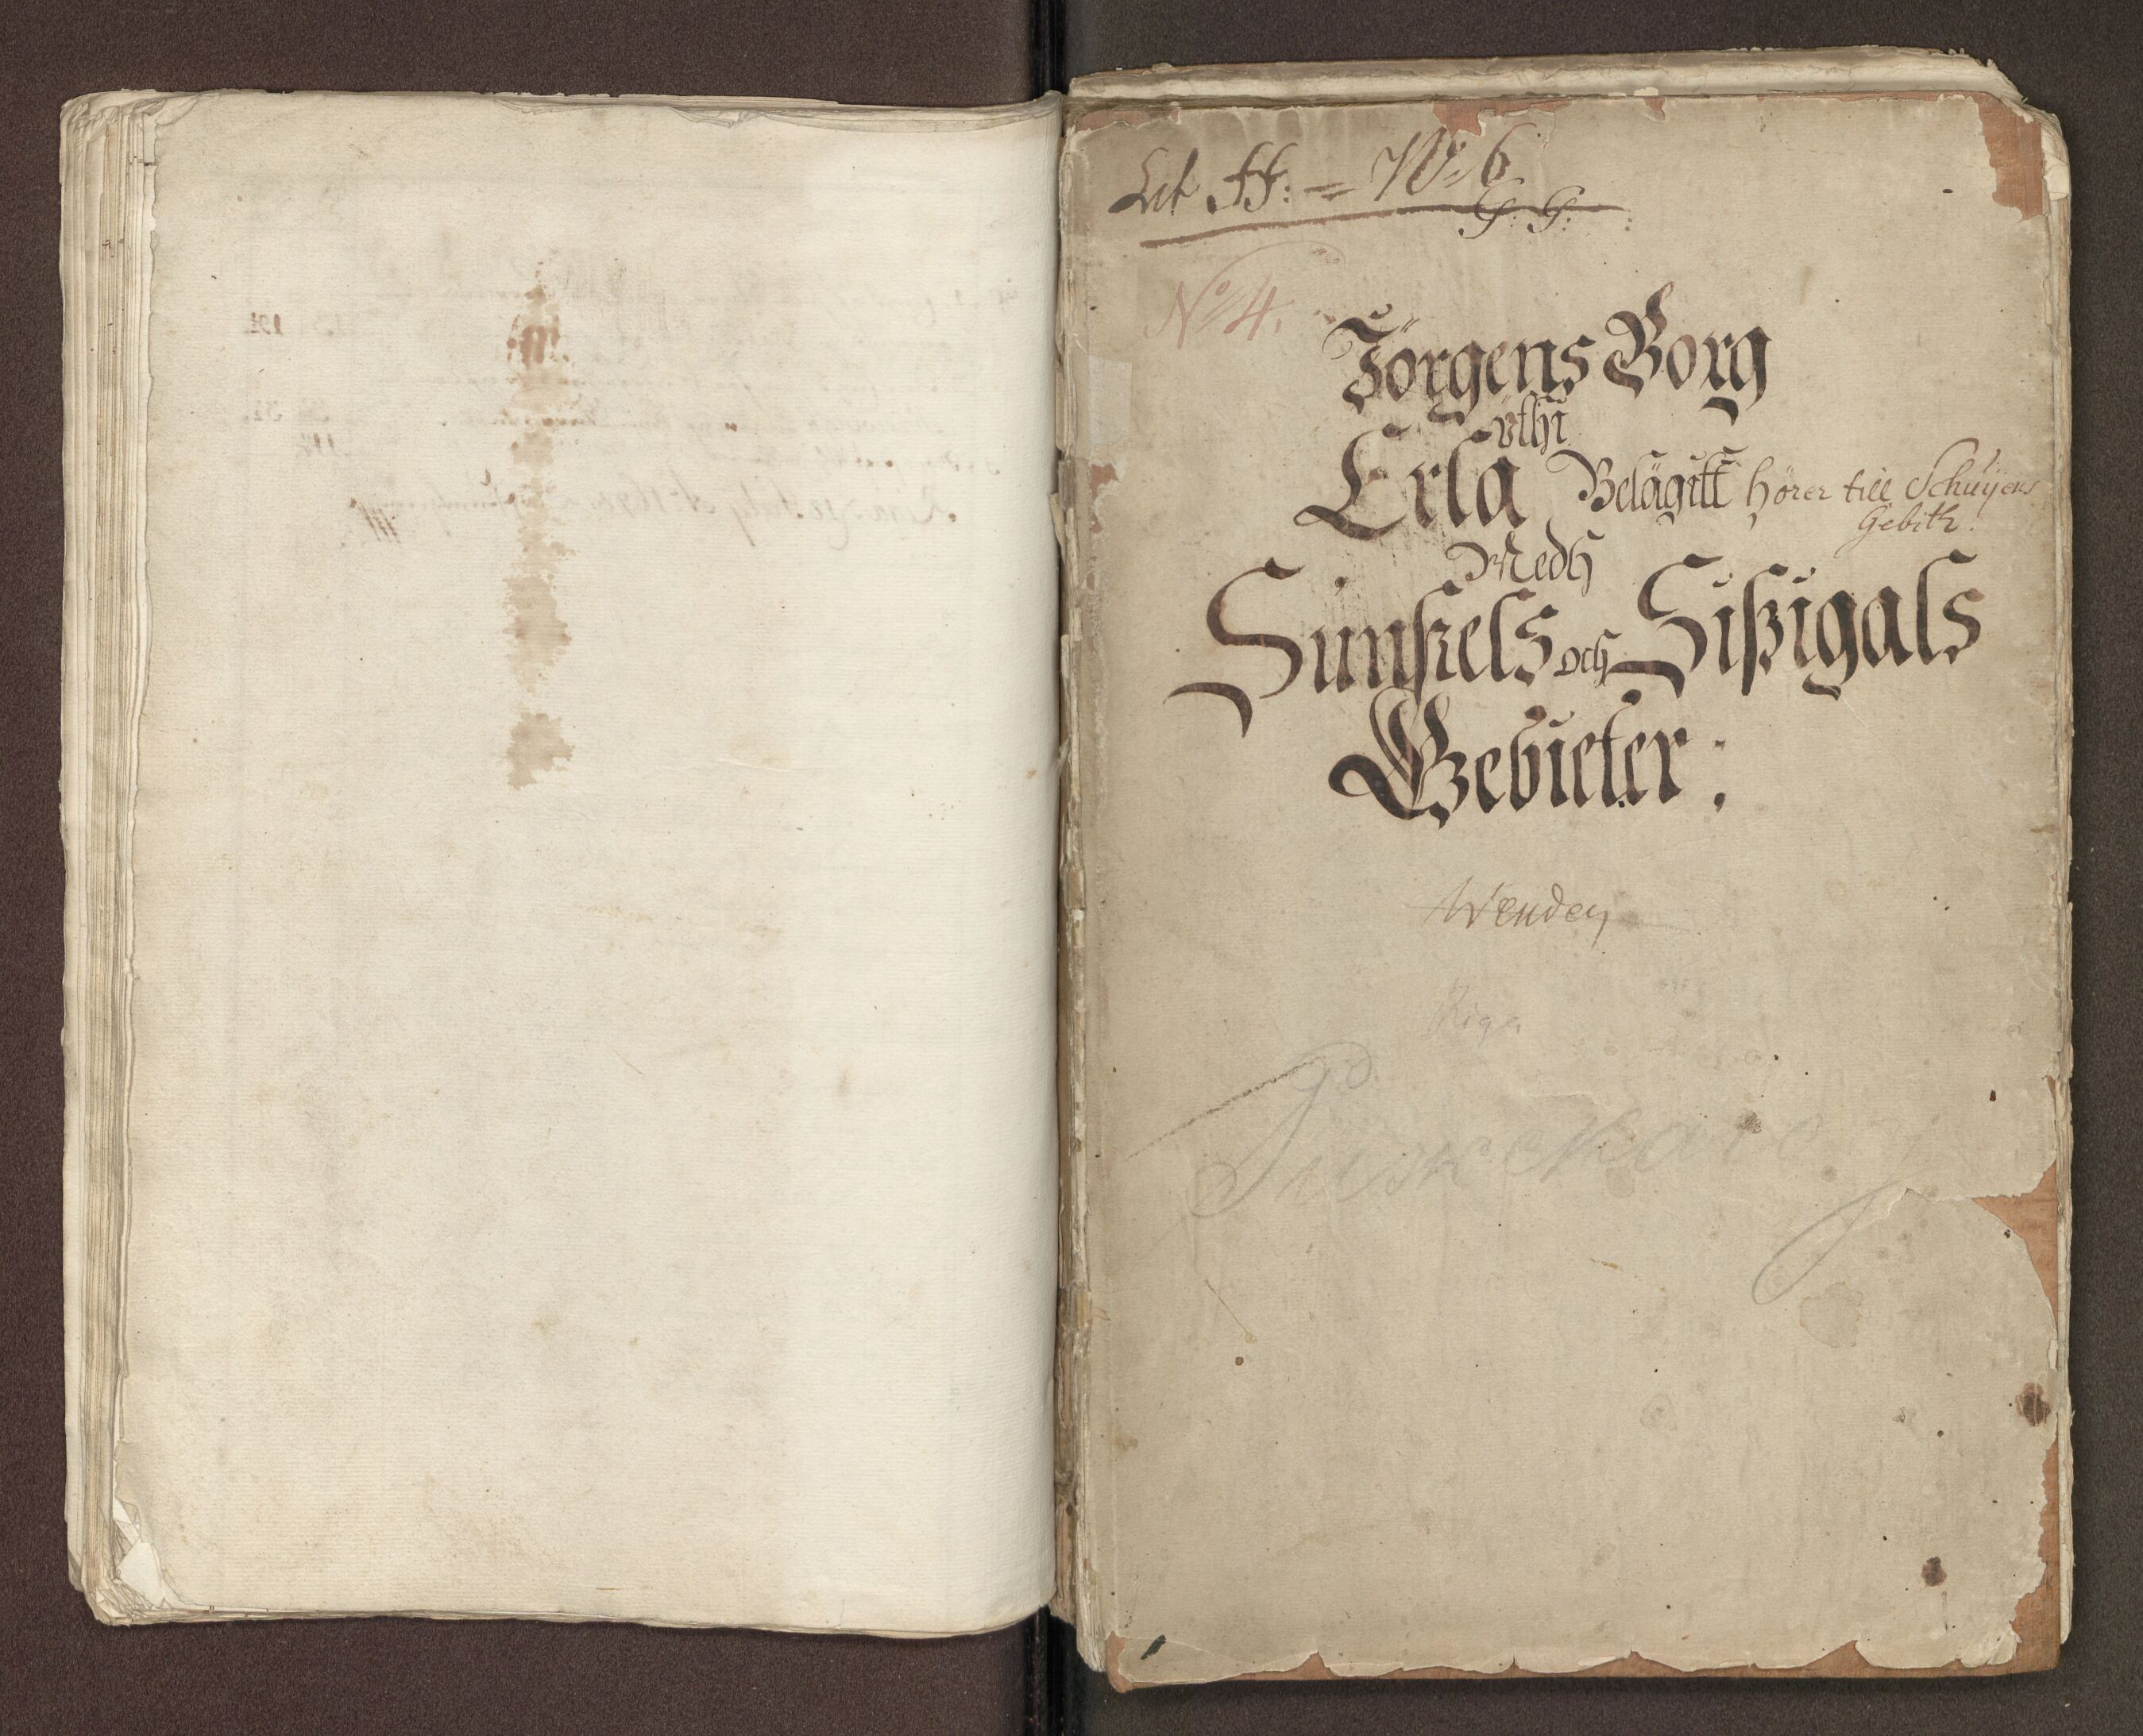 Lit ff: = No: 6
G. G:
No 4.
Jörgens Borg
uthi
Erla Belägitt hörer till Schuijens
Gebith.
Medh
Sunszels och Siszigals
Gebieter:
Wenden
Riga